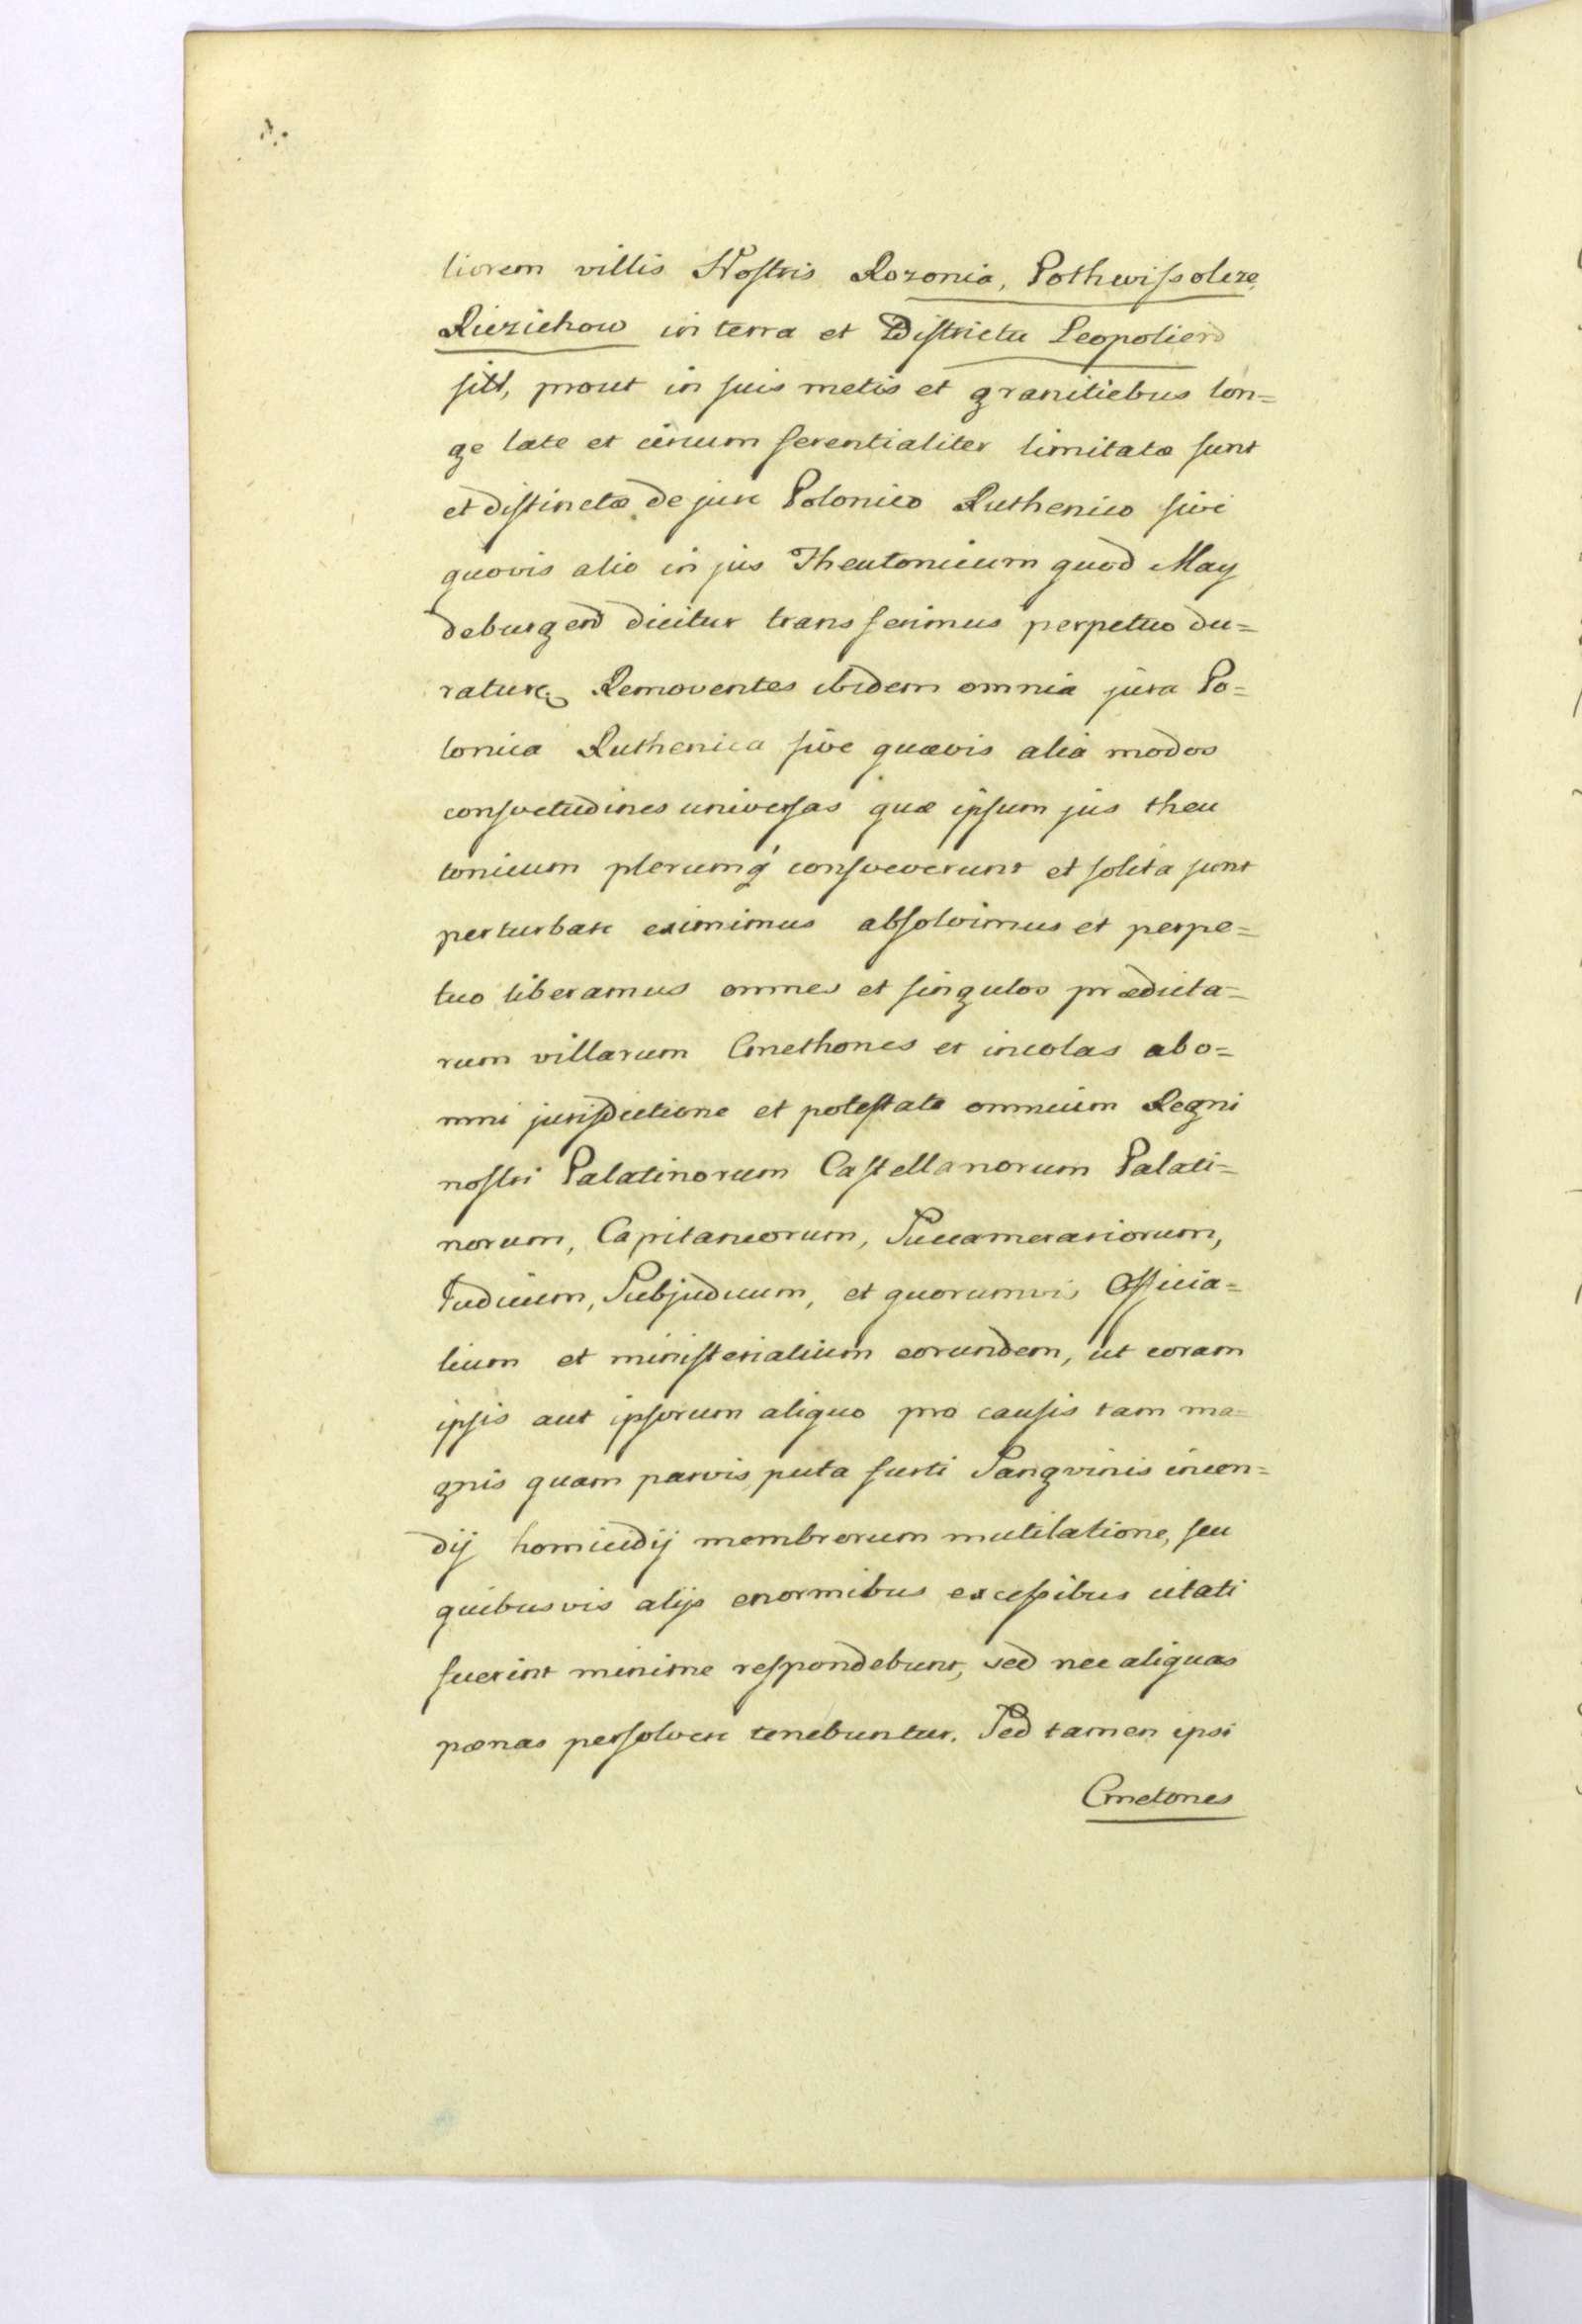 liorem villis Nostris Rozonia, Pothwissoleze,
Rierichow in terra et Districtu Leopoliens
sitt, prout in suis metis et granitiebus lon=
ge late et circum ferentialiter limitatæ sunt
et distinctæ de jure Polonico Ruthenico sive
quovis alio in jus Theutonicum quod May
deburgens dicitur transferimus perpetuo du=
rature. Removentes ibidem omnia jura Po=
lonica Ruthenica sive quævis alia modos
consvetudines universas quæ ipsum jus theu
tonicum plerumq́ consveverunt et solita sunt
perturbare eximimus absolvimus et perpe=
tuo liberamus omnes et singulos prædicta=
rum villarum Cmethones et incolas ab o=
mni jurisdictione et potestate omnium Regni
nostri Palatinorum Castellanorum Palati=
norum, Capitaneorum, Succamerariorum,
Judicum, Subjudicum, et quorumvis Officia=
lium et ministerialium eorundem, ut coram
ipsis aut ipsorum aliquo pro causis tam ma=
gnis quam parvis puta furti Sangvinis incen=
dij homicidij membrorum mutilatione, seu
quibusvis alijs enormibus excessibus citati
fuerint minime respondebunt, sed nec aliquas
pœnas persolvere tenebuntur. Sed tamen ipsi
Cmetones